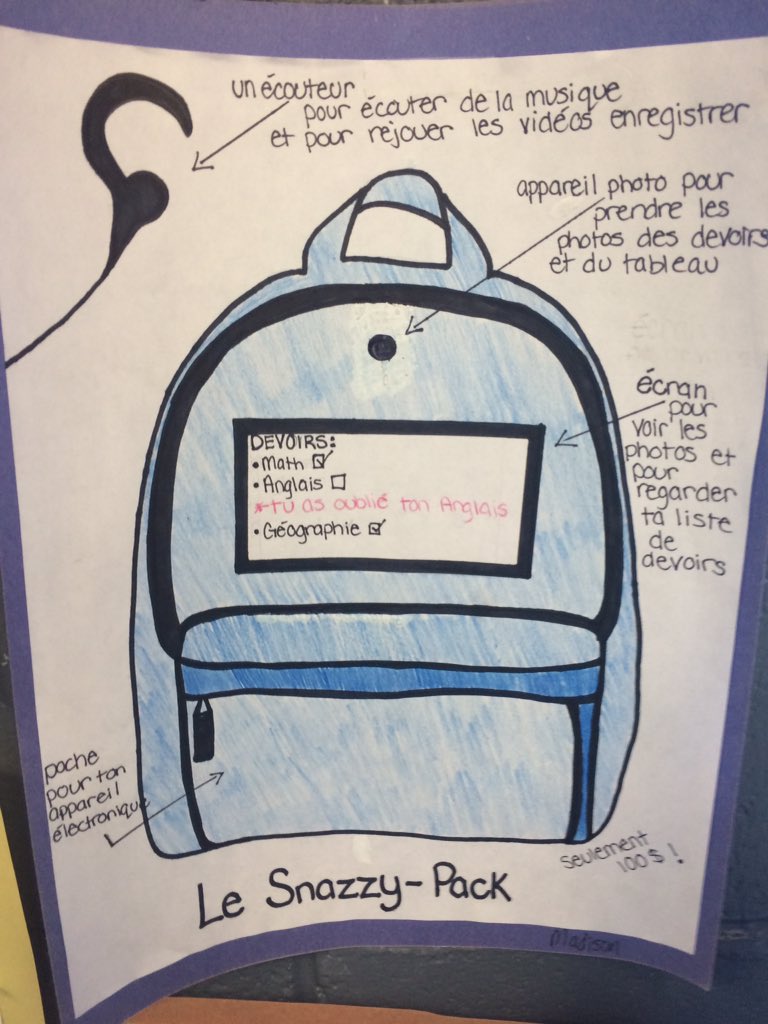 un écouteur
pour écouter de la musique
et pour rejouer les vidéos enregistrer
appareil photo pour
prendre les
photos des devoirs
et du tableau
écran
pour
voir les
photos et
pour
regarder
ta liste
de
devoirs
DEVOIRS:
• Math ☑
• Anglais ☐
*tu as oublié ton Anglais
• Géographie ☑
poche
pour ton
appareil
électronique
seulement
100$!
Le Snazzy-Pack
Madison